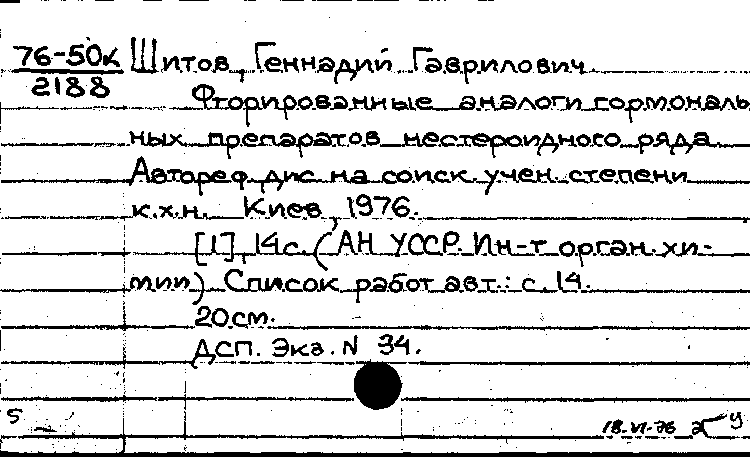 76-50к Шитов, Геннадий Гаврилович
2188
Фторированные аналоги гормональ
ных препаратов нестероидного ряда
Автореф. дис. на соиск. учен. степени
к.х.н. Киев, 1976.
[1], 14 с. (АН УССР. Ин-т орган. хи-
мии) Список работ авт.: с. 14.
20 см.
ДСП. Экз. N 34.
5
18.VI-76 2 У